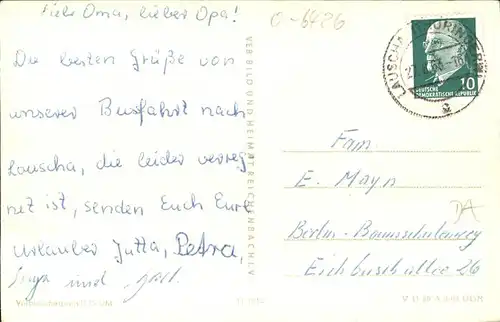 Liebe Oma, lieber Opa!
Die besten Grüße von
unserer Busfahrt nach
Lauscha, die leider verreg
net ist, senden Euch Eure
Urlauber Jutta, Petra,
und
O-6426
VEB BILD UND HEIMAT REICHENBACH I. V.
LAUSCHA
DEUTSCHE
DEMOKRATISCHE REPUBLIK
10
Fam
E. Mayn
Berlin-Baumschulenweg
Eichbuschallee 26
DA